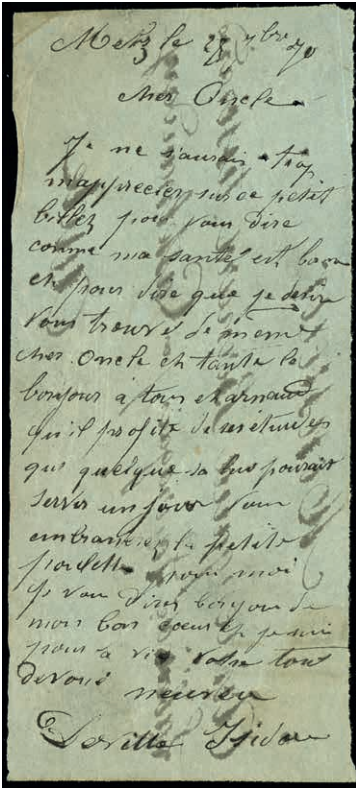 Metz le 25 7bre 70
cher Oncle
Je ne saurais trop
m'apprecier sur ce petit
billet pour vous dire
comme ma santé est bonne
et pour dire que je désire
vous trouvé de meme
cher Oncle et tante le
bonjour à tous et arnaud
qu'il profite de ses études
que quelque sa lui pourait
servir un jour vous
embrasserez la petite
poulette pour moi
Je vous dires bonjour de
mon bon coeur et je suis
pour la vie votre tout
devoué neuveu
Deville Isidore